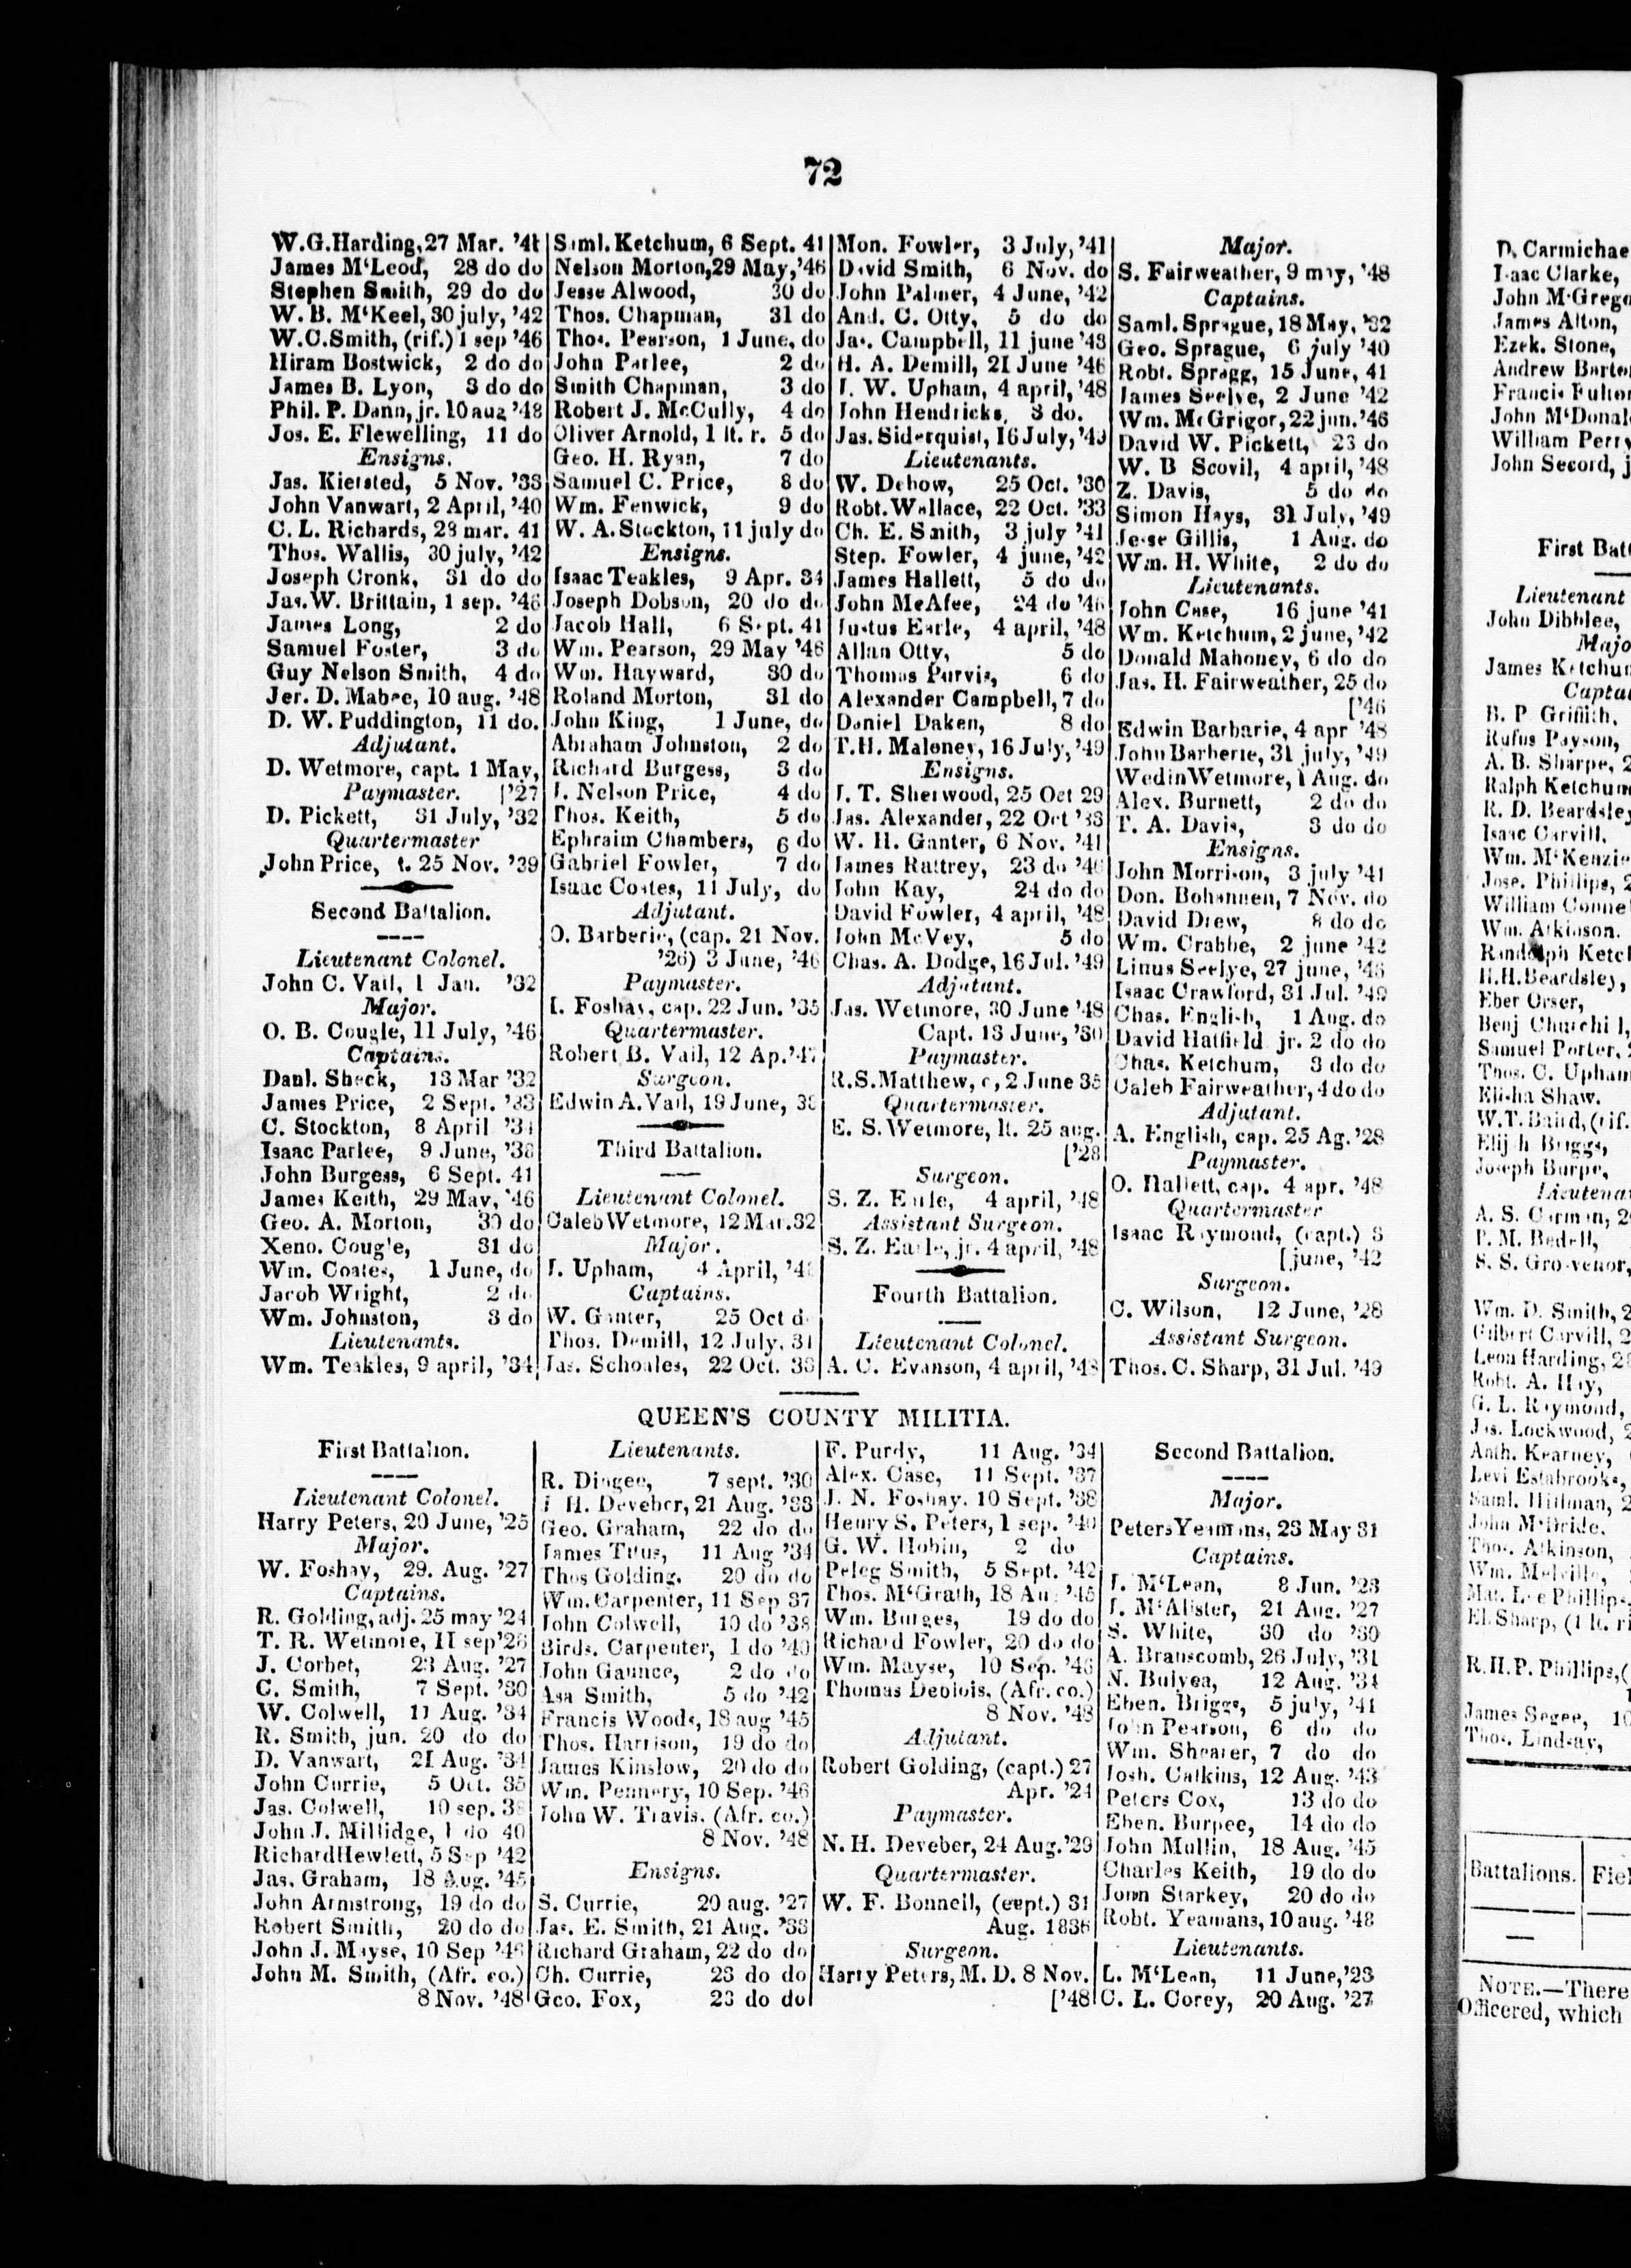 72
W.G.Harding, 27 Mar. '41
James M'Leod, 28 do do
Stephen Smith, 29 do do
W. B. M'Keel, 30 july, '42
W.C.Smith, (rif.) 1 sep '46
Hiram Bostwick, 2 do do
James B. Lyon, 3 do do
Phil. P. Dann, jr. 10 aug '48
Jos. E. Flewelling, 11 do
Ensigns.
Jas. Kiersted, 5 Nov. '33
John Vanwart, 2 April, '40
C. L. Richards, 28 mar. 41
Thos. Wallis, 30 july, '42
Joseph Cronk, 31 do do
Jas. W. Brittain, 1 sep. '46
James Long, 2 do
Samuel Foster, 3 do
Guy Nelson Smith, 4 do
Jer. D. Mabee, 10 aug. '48
D. W. Puddington, 11 do.
Adjutant.
D. Wetmore, capt. 1 May,
Paymaster. ['27
D. Pickett, 31 July, '32
Quartermaster
John Price, t. 25 Nov. '39
Second Battalion.
Lieutenant Colonel.
John C. Vail, 1 Jan. '32
Major.
O. B. Cougle, 11 July, '46
Captains.
Danl. Sheck, 13 Mar '32
James Price, 2 Sept. '33
C. Stockton, 8 April '34
Isaac Parlee, 9 June, '38
John Burgess, 6 Sept. 41
James Keith, 29 May, '46
Geo. A. Morton, 30 do
Xeno. Cougle, 31 do
Wm. Coates, 1 June, do
Jacob Wright, 2 do
Wm. Johnston, 3 do
Lieutenants.
Wm. Teakles, 9 april, '34
Saml. Ketchum, 6 Sept. 41
Nelson Morton, 29 May, '46
Jesse Alwood, 30 do
Thos. Chapman, 31 do
Thos. Pearson, 1 June, do
John Parlee, 2 do
Smith Chapman, 3 do
Robert J. McCully, 4 do
Oliver Arnold, 1 lt. r. 5 do
Geo. H. Ryan, 7 do
Samuel C. Price, 8 do
Wm. Fenwick, 9 do
W. A. Stockton, 11 july do
Ensigns.
Isaac Teakles, 9 Apr. 34
Joseph Dobson, 20 do do
Jacob Hall, 6 Sept. 41
Wm. Pearson, 29 May '46
Wm. Hayward, 30 do
Roland Morton, 31 do
John King, 1 June, do
Abraham Johnston, 2 do
Richard Burgess, 3 do
J. Nelson Price, 4 do
Thos. Keith, 5 do
Ephraim Chambers, 6 do
Gabriel Fowler, 7 do
Isaac Coates, 11 July, do
Adjutant.
O. Barberie, (cap. 21 Nov.
'26) 3 June, '46
Paymaster.
I. Foshay, cap. 22 Jun. '35
Quartermaster.
Robert B. Vail, 12 Ap. '47
Surgeon.
Edwin A. Vail, 19 June,
Third Battalion.
Lieutenant Colonel.
Caleb Wetmore, 12 Mar. 32
Major.
J. Upham, 4 April,
Captains.
W. Ganter, 25 Oct
Thos. Demill, 12 July, 31
Jas. Schoales, 22 Oct. 33
Mon. Fowler, 3 July, '41
David Smith, 6 Nov. do
John Palmer, 4 June, '42
And. C. Otty, 5 do do
Jas. Campbell, 11 june '43
H. A. Demill, 21 June '46
J. W. Upham, 4 april, '48
John Hendricks, 3 do.
Jas. Siderquist, 16 July, '49
Lieutenants.
W. Debow, 25 Oct. '30
Robt. Wallace, 22 Oct. '33
Ch. E. Smith, 3 july '41
Step. Fowler, 4 june, '42
James Hallett, 5 do do
John McAfee, 24 do '46
Justus Earle, 4 april, '48
Allan Otty, 5 do
Thomas Purvis, 6 do
Alexander Campbell, 7 do
Daniel Daken, 8 do
T.H. Maloney, 16 July, '49
Ensigns.
J. T. Sherwood, 25 Oct 29
Jas. Alexander, 22 Oct '33
W. H. Ganter, 6 Nov. '41
James Rattrey, 23 do '46
John Kay, 24 do do
David Fowler, 4 april, '48
John McVey, 5 do
Chas. A. Dodge, 16 Jul. '49
Adjutant.
Jas. Wetmore, 30 June '48
Capt. 13 June, '30
Paymaster.
R.S. Matthew, c, 2 June 35
Quartermaster.
E. S. Wetmore, lt. 25 aug.
['28
Surgeon.
S. Z. Earle, 4 april, '48
Assistant Surgeon.
S. Z. Earle, jr. 4 april, '48
Fourth Battalion.
Lieutenant Colonel.
A. C. Evanson, 4 april, '48
Major.
S. Fairweather, 9 may, '48
Captains.
Saml. Sprague, 18 May, '32
Geo. Sprague, 6 july '40
Robt. Spragg, 15 June, 41
James Seelye, 2 June '42
Wm. McGrigor, 22 jun. '46
David W. Pickett, 23 do
W. B Scovil, 4 april, '48
Z. Davis, 5 do do
Simon Hays, 31 July, '49
Jesse Gillis, 1 Aug. do
Wm. H. White, 2 do do
Lieutenants.
John Case, 16 june '41
Wm. Ketchum, 2 june, '42
Donald Mahoney, 6 do do
Jas. H. Fairweather, 25 do
['46
Edwin Barbarie, 4 apr '48
John Barberie, 31 july, '49
Wedin Wetmore, 1 Aug. do
Alex. Burnett, 2 do do
T. A. Davis, 3 do do
Ensigns.
John Morrison, 3 july '41
Don. Bohannen, 7 Nov. do
David Drew, 8 do do
Wm. Crabbe, 2 june '42
Linus Seelye, 27 june, '46
Isaac Crawford, 31 Jul. '49
Chas. English, 1 Aug. do
David Hatfield jr. 2 do do
Chas. Ketchum, 3 do do
Caleb Fairweather, 4 do do
Adjutant.
A. English, cap. 25 Ag. '28
Paymaster.
O. Hallett, cap. 4 apr. '48
Quartermaster
Isaac Raymond, (capt.) 3
[june, '42
Surgeon.
C. Wilson, 12 June, '28
Assistant Surgeon.
Thos. C. Sharp, 31 Jul. '49
QUEEN'S COUNTY MILITIA.
First Battalion.
Lieutenant Colonel.
Harry Peters, 20 June, '25
Major.
W. Foshay, 29. Aug. '27
Captains.
R. Golding, adj. 25 may '24
T. R. Wetmore, 11 sep '26
J. Corbet, 23 Aug. '27
C. Smith, 7 Sept. '30
W. Colwell, 11 Aug. '34
R. Smith, jun. 20 do do
D. Vanwart, 21 Aug. '34
John Currie, 5 Oct. 35
Jas. Colwell, 10 sep. 38
John J. Millidge, 1 do 40
Richard Hewlett, 5 Sep '42
Jas. Graham, 18 Aug. '45
John Armstrong, 19 do do
Robert Smith, 20 do do
John J. Mayse, 10 Sep '46
John M. Smith, (Afr. co.)
8 Nov. '48
Lieutenants.
R. Dingee, 7 sept. '30
H. Deveber, 21 Aug. '33
Geo. Graham, 22 do do
James Titus, 11 Aug '34
Thos Golding. 20 do do
Wm. Carpenter, 11 Sep 37
John Colwell, 10 do '38
Birds. Carpenter, 1 do '40
John Gaunce, 2 do do
Asa Smith, 5 do '42
Francis Woods, 18 aug '45
Thos. Harrison, 19 do do
James Kinslow, 20 do do
Wm. Pennery, 10 Sep. '46
John W. Travis. (Afr. co.)
8 Nov. '48
Ensigns.
S. Currie, 20 aug. '27
Jas. E. Smith, 21 Aug. '33
Richard Graham, 22 do do
Ch. Currie, 23 do do
Geo. Fox, 23 do do
F. Purdy, 11 Aug. '34
Alex. Case, 11 Sept. '37
J. N. Foshay. 10 Sept. '38
Henry S. Peters, 1 sep. '40
G. W. Hobin, 2 do
Peleg Smith, 5 Sept. '42
Thos. M'Grath, 18 Au. '45
Wm. Burges, 19 do do
Richard Fowler, 20 do do
Wm. Mayse, 10 Sep. '46
Thomas Deblois, (Afr. co.)
8 Nov. '48
Adjutant.
Robert Golding, (capt.) 27
Apr. '24
Paymaster.
N. H. Deveber, 24 Aug. '29
Quartermaster.
W. F. Bonnell, (cept.) 31
Aug. 1836
Surgeon.
Harry Peters, M. D. 8 Nov.
['48
Second Battalion.
Major.
Peters Yeamans, 23 May 31
Captains.
J. M'Lean, 8 Jun. '23
J. M'Alister, 21 Aug. '27
S. White, 30 do '30
A. Branscomb, 26 July, '31
N. Bulyea, 12 Aug. '34
Eben. Briggs, 5 july, '41
John Pearson, 6 do do
Wm. Shearer, 7 do do
Josh. Calkins, 12 Aug. '43
Peters Cox, 13 do do
Eben. Burpee, 14 do do
John Mullin, 18 Aug. '45
Charles Keith, 19 do do
John Starkey, 20 do do
Robt. Yeamans, 10 aug. '48
Lieutenants.
L. M'Lean, 11 June, '23
C. L. Corey, 20 Aug. '27
D. Carmichae
Isaac Clarke,
John M'Grego
James Alton,
Ezek. Stone,
Andrew Barto
Francis Fulto
John M'Donal
William Perry
John Secord, j
First Batt
Lieutenant
John Dibblee,
Majo
James Ketchu
Captai
B. P Griffith,
Rufus Payson,
A. B. Sharpe, 2
Ralph Ketchum
R. D. Beardsley
Isaac Carvill.
Wm. M'Kenzie
Jose. Phillips, 2
William Conne
Wm. Atkinson.
Randolph Ketc
H.H. Beardsley,
Eber Orser,
Benj Churchill,
Samuel Porter,
Thos. C. Upham
Elisha Shaw.
W.T. Baird, (rif.
Elijah Briggs,
Joseph Burpe,
Lieutena
A. S. Carman, 2
P. M. Bedell,
S. S. Grosvenor,
Wm. D. Smith, 2
Gilbert Carvill, 2
Leon Harding, 2
Robt. A. Hay,
G. L. Raymond,
Jas. Lockwood, 2
Anth. Kearney,
Levi Estabrooks,
Saml. Hillman, 2
John M'Bride,
Thos. Atkinson,
Wm. Melville,
Mat. Lee Phillips
El. Sharp, (1 lt. ri
R.H.P. Phillips, (
James Segee, 10
Thos. Lindsay,
Battalions. Fiel
NOTE.—There
Officered, which